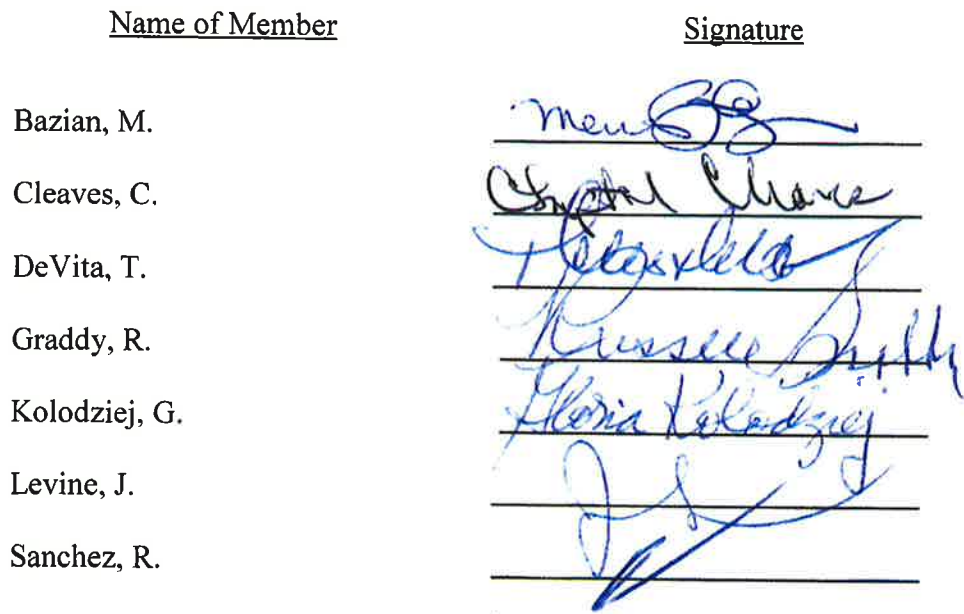 Name of Member Signature
Bazian, M.
Cleaves, C. Crystal Cleaves
DeVita, T.
Graddy, R. Russell
Kolodziej, G. Gloria Kolodziej
Levine, J.
Sanchez, R.